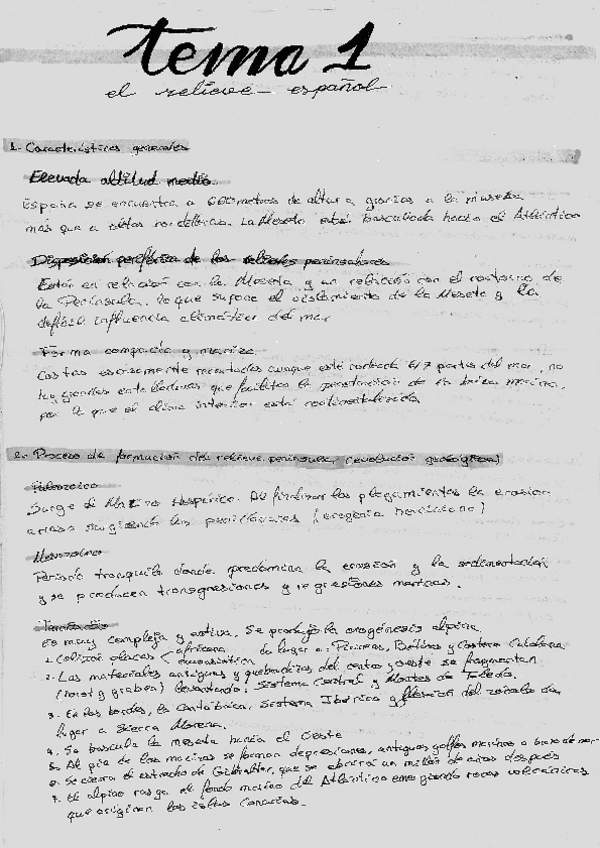 tema 1
el relieve español
1. Características generales
Elevada altitud media
España se encuentra a 660 metros de altura gracias a la
más que a estas cordilleras. La Meseta está basculada hacia el Atlántico
Disposición periférica de los relieves peninsulares
Están en relación con la Meseta y en relación con el contorno de
la Península, lo que supone el aislamiento de la Meseta y la
difícil influencia climática del mar
Forma compacta y maciza
Costas escasamente recortadas aunque está rodeada 6/7 partes del mar, no
hay grandes entalladuras que faciliten la penetración de la brisa marina,
por lo que el clima interior está continentalizado
2. Proceso de formación del relieve peninsular (evolución geológica)
Paleozoico
Surge el Macizo Hespérico. Al finalizar los plegamientos la erosión
arrasa surgiendo las penillanuras (orogenia herciniana)
Mesozoico
Periodo tranquilo donde predomina la erosión y la sedimentación
y se producen transgresiones y regresiones marinas.
Terciario
Es muy compleja y activa. Se produjo la orogénesis alpina.
1. Colisión placas < africana euroasiática da lugar a: Pirineos, Béticas y Costera Catalana
2. Los materiales antiguos y quebradizos del centro y oeste se fragmentan
(horst y graben) levantando: Sistema Central y Montes de Toledo.
3. En los bordes, la Cantábrica, Sistema Ibérico y flexión del zócalo da
lugar a Sierra Morena.
4. Se bascula la meseta hacia el Oeste
5. Al pie de los macizos se forman depresiones, antiguos golfos marinos a base de
6. Se cierra el estrecho de Gibraltar, que se abrirá un millón de años después
7. El alpino rasga el fondo marino del Atlántico emergiendo rocas volcánicas
que originan las islas Canarias.